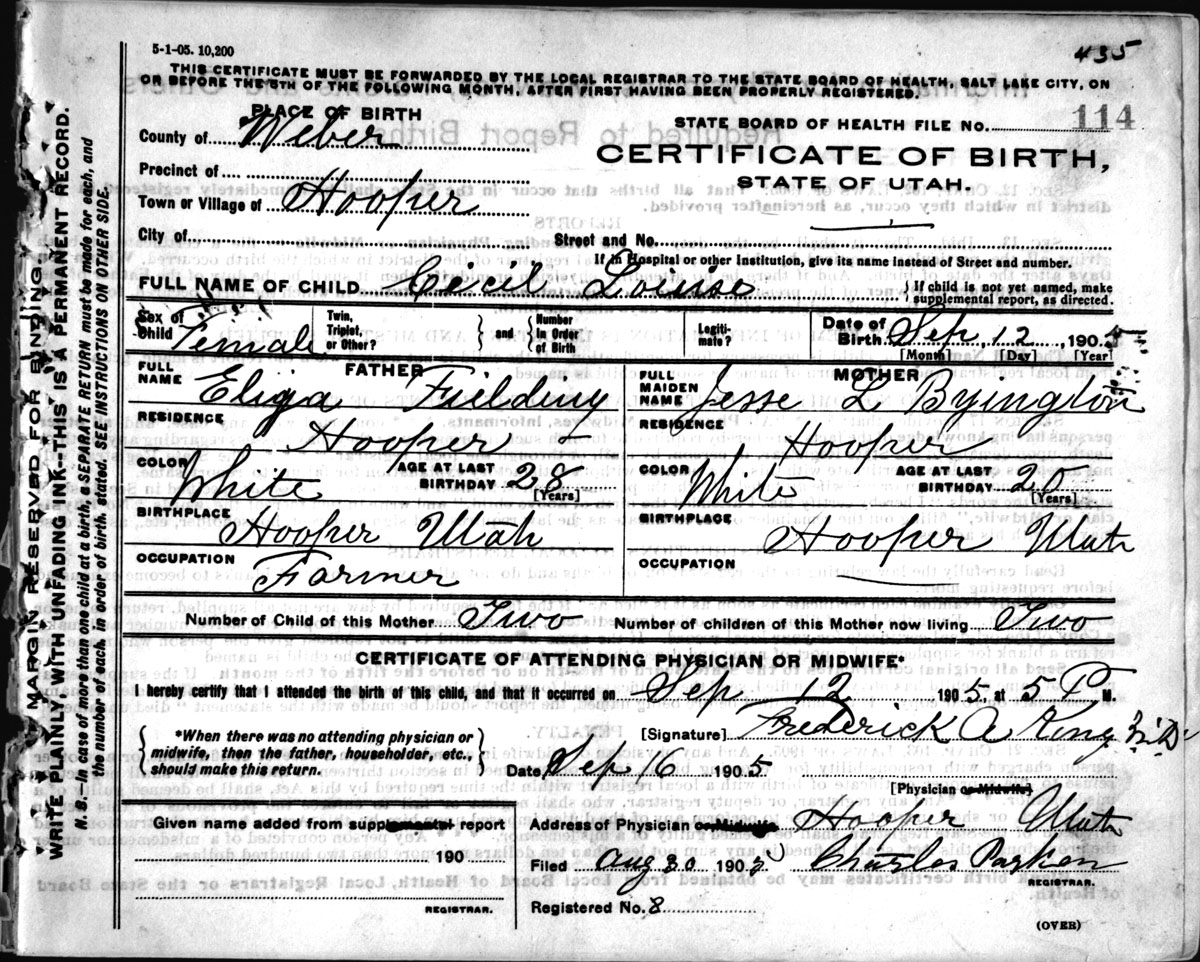 5-1-05. 10,200
435
THIS CERTIFICATE MUST BE FORWARDED BY THE LOCAL REGISTRAR TO THE STATE BOARD OF HEALTH, SALT LAKE CITY, ON
OR BEFORE THE 5TH OF THE FOLLOWING MONTH, AFTER FIRST HAVING BEEN PROPERLY REGISTERED.
PLACE OF BIRTH
STATE BOARD OF HEALTH FILE NO. 114
County of Weber
CERTIFICATE OF BIRTH,
STATE OF UTAH.
Precinct of
Town or Village of Hooper
City of
Street and No.
If in Hospital or other Institution, give its name instead of Street and number.
FULL NAME OF CHILD Cecil Louise
{ If child is not yet named, make supplemental report, as directed.
Sex of Child Female
Twin, Triplet, or Other? } and { Number in Order of Birth
Legitimate?
Date of Birth Sep, 12, 1905
[Month] [Day] [Year]
FATHER
FULL NAME Eliga Fielding
RESIDENCE Hooper
COLOR White AGE AT LAST BIRTHDAY 28 [Years]
BIRTHPLACE Hooper Utah
OCCUPATION Farmer
MOTHER
FULL MAIDEN NAME Jesse L Byington
RESIDENCE Hooper
COLOR White AGE AT LAST BIRTHDAY 20 [Years]
BIRTHPLACE Hooper Utah
OCCUPATION
Number of Child of this Mother Two Number of children of this Mother now living Two
CERTIFICATE OF ATTENDING PHYSICIAN OR MIDWIFE*
I hereby certify that I attended the birth of this child, and that it occurred on Sep 12 1905 at 5 P M.
{ *When there was no attending physician or midwife, then the father, householder, etc., should make this return. }
[Signature] Frederick A King M.D.
Date, Sep 16 1905
[Physician or Midwife]
Given name added from supplemental report
190
REGISTRAR.
Address of Physician or Midwife Hooper Utah
Filed Aug 30 1905 Charles Parker
REGISTRAR.
Registered No. 8
(OVER)
MARGIN RESERVED FOR BINDING.
WRITE PLAINLY, WITH UNFADING INK--THIS IS A PERMANENT RECORD.
N. B.--In case of more than one child at a birth, a SEPARATE RETURN must be made for each, and
the number of each, in order of birth, stated. SEE INSTRUCTIONS ON OTHER SIDE.